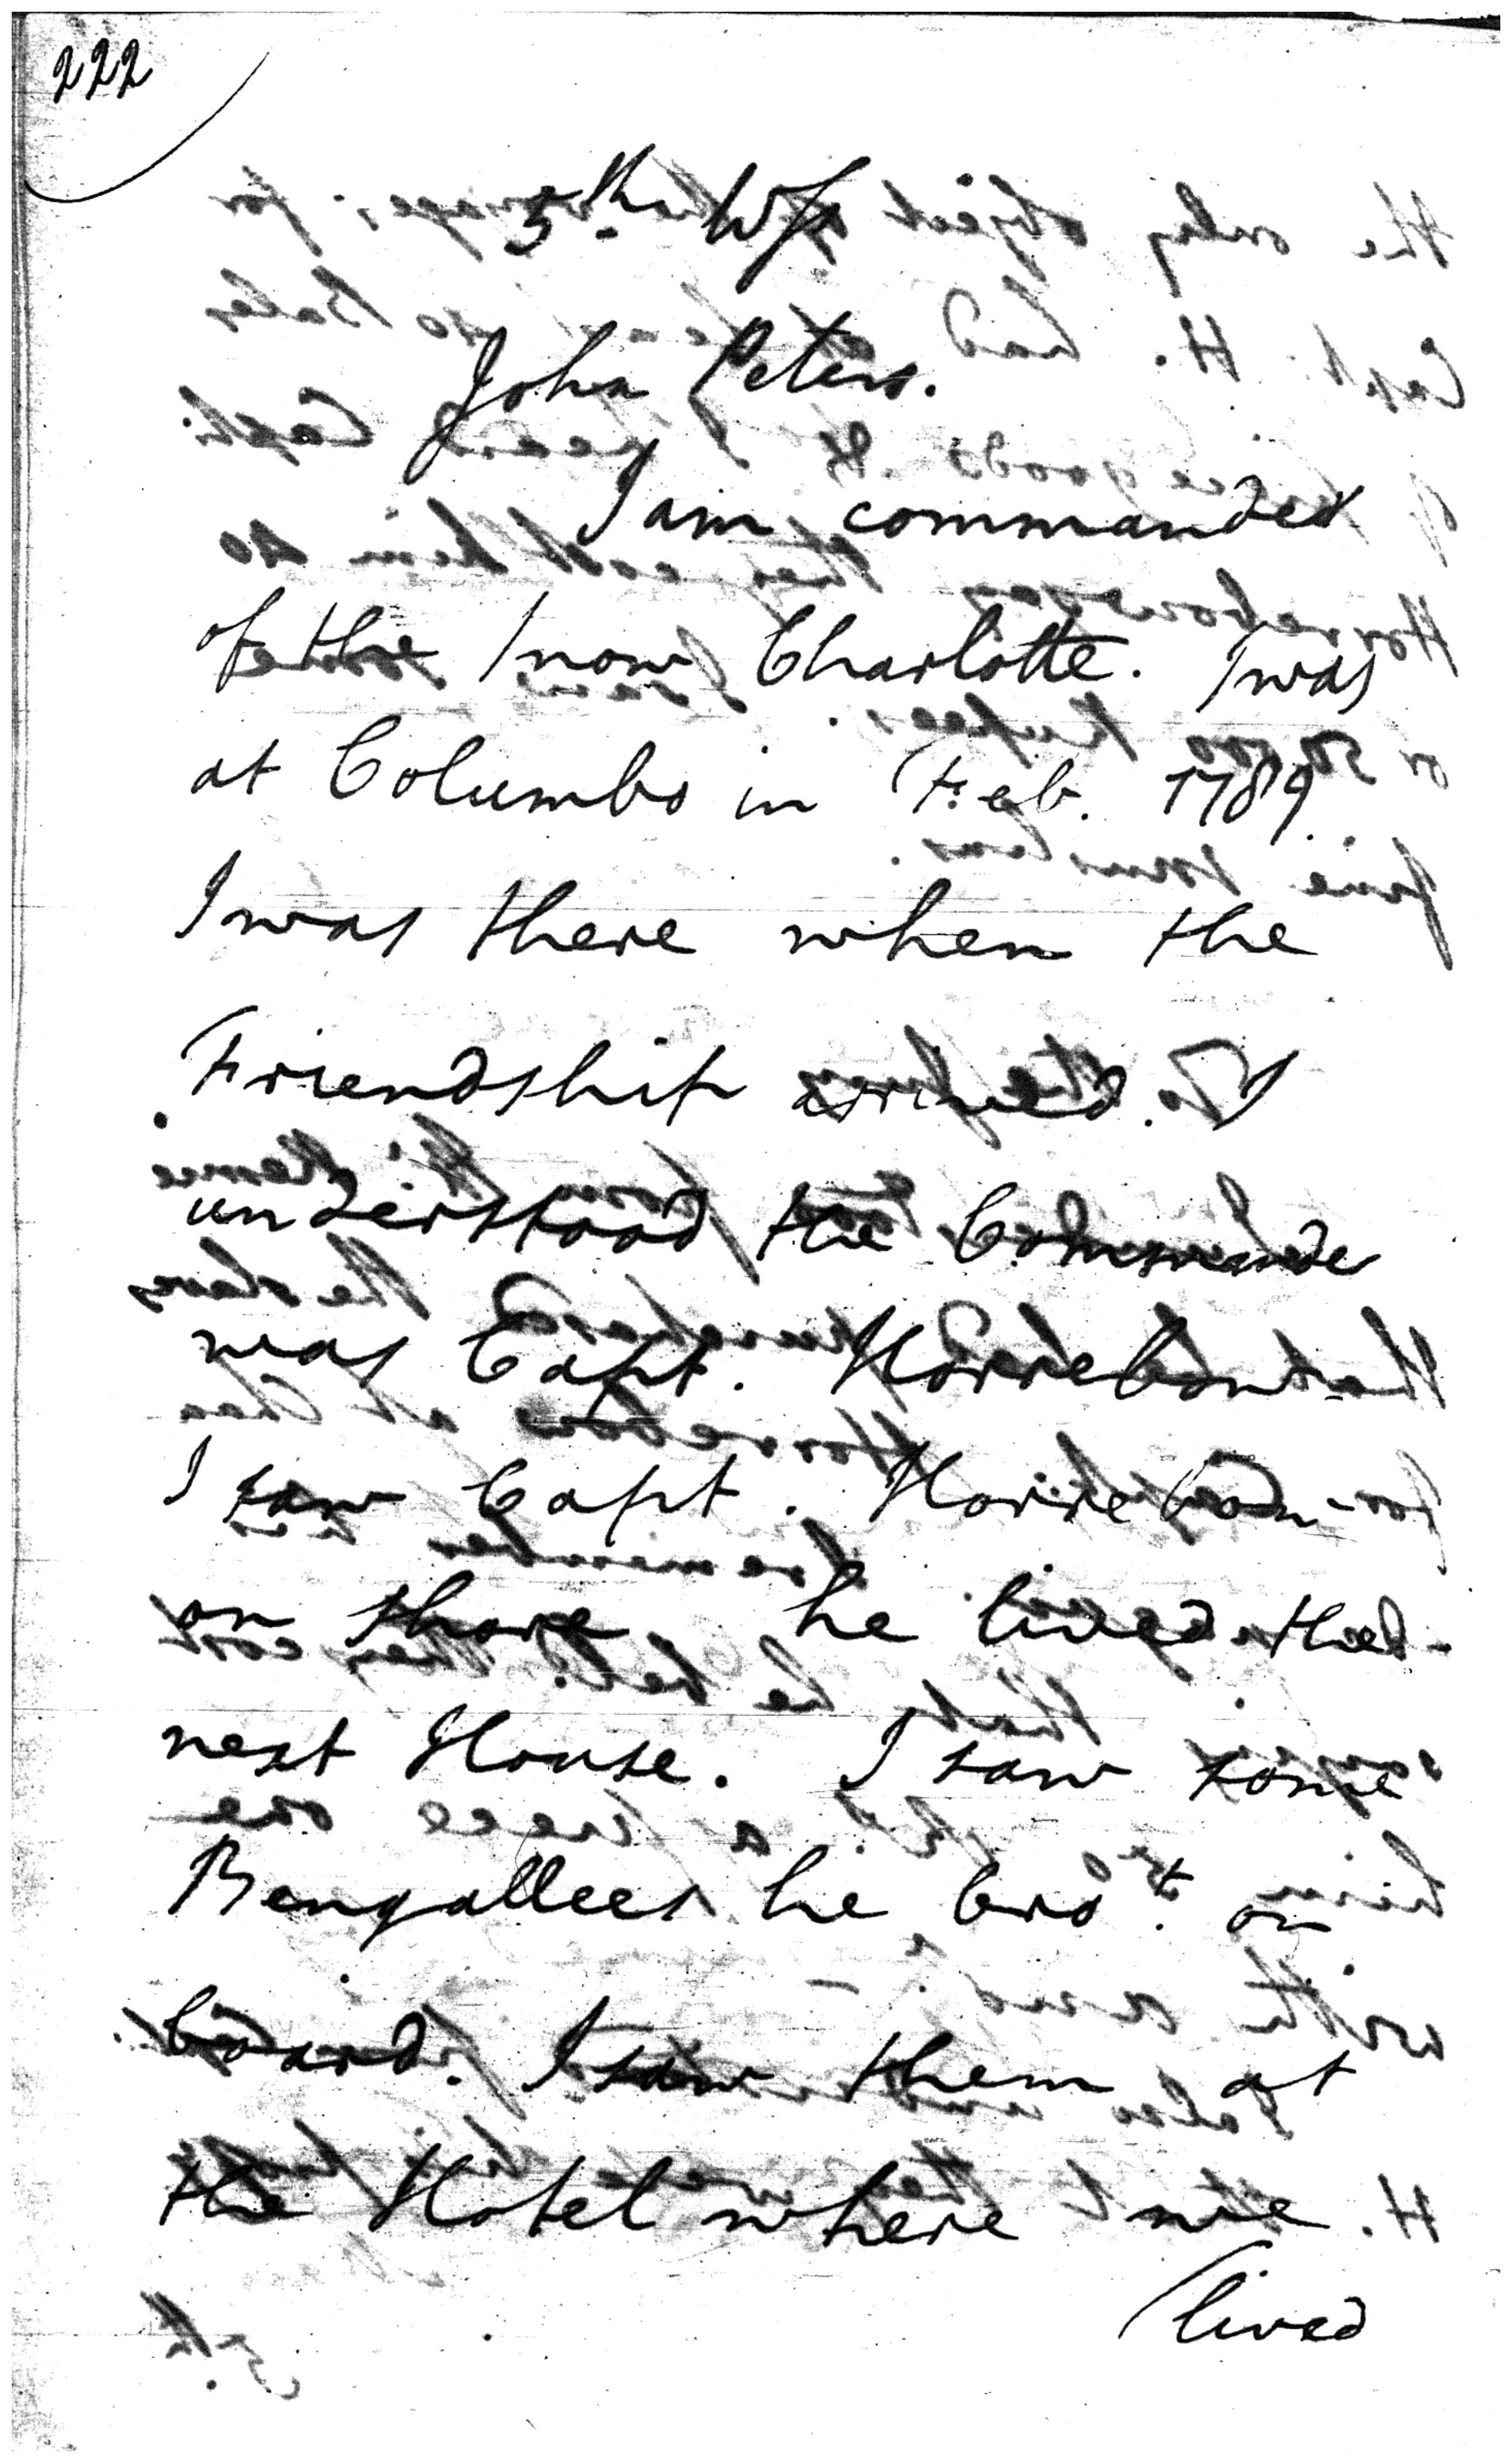 222
5th. Ws
John Peters.
I am commander
of the Snow Charlotte. I was
at Columbo in Feb. 1789
I was there when the
Friendship arrived. I
understood the Commander
was Capt. Horrebow-
I saw Capt. Horrebow-
on shore he lived the
next House. I saw some
Bengallees he bro.t on
board. I saw them at
the Hotel where we
lived